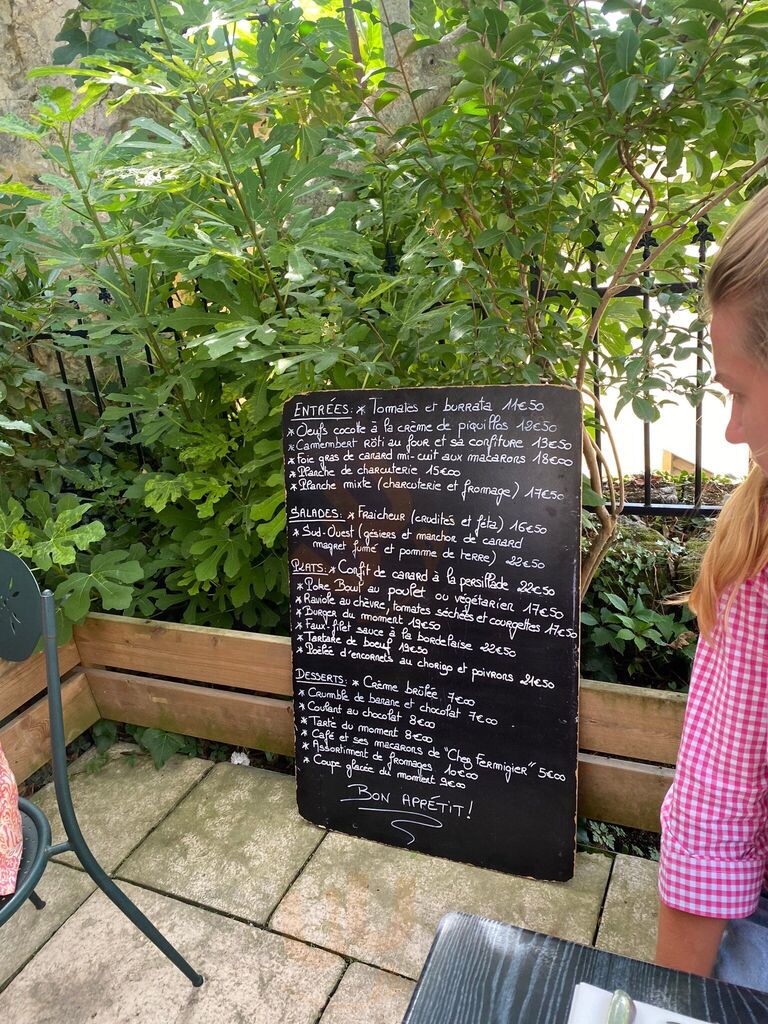 ENTRÉES: * Tomates et burrata 11€50
* Oeufs cocotte à la crème de piquillos 12€50
* Camembert rôti au four et sa confiture 13€50
* Foie gras de canard mi-cuit aux macarons 18€00
* Planche de charcuterie 15€00
* Planche mixte (charcuterie et fromage) 17€50
SALADES: * Fraicheur (crudités et féta) 16€50
* Sud-Ouest (gésiers et manchon de canard
magret fumé et pomme de terre) 22€50
PLATS: * Confit de canard à la persillade 22€50
* Poke Bowl au poulet ou végétarien 17€50
* Raviole au chèvre, tomates séchées et courgettes 17€50
* Burger du moment 19€50
* Faux-filet sauce à la bordelaise 22€50
* Tartare de boeuf 19€50
* Poêlée d'encornets au chorizo et poivrons 21€50
DESSERTS: * Crème brûlée 7€00
* Crumble de banane et chocolat 7€00
* Coulant au chocolat 8€00
* Tarte du moment 8€00
* Café et ses macarons de "Chez Fermigier" 5€00
* Assortiment de fromages 10€00
* Coupe glacée du moment 9€00
BON APPÉTIT!